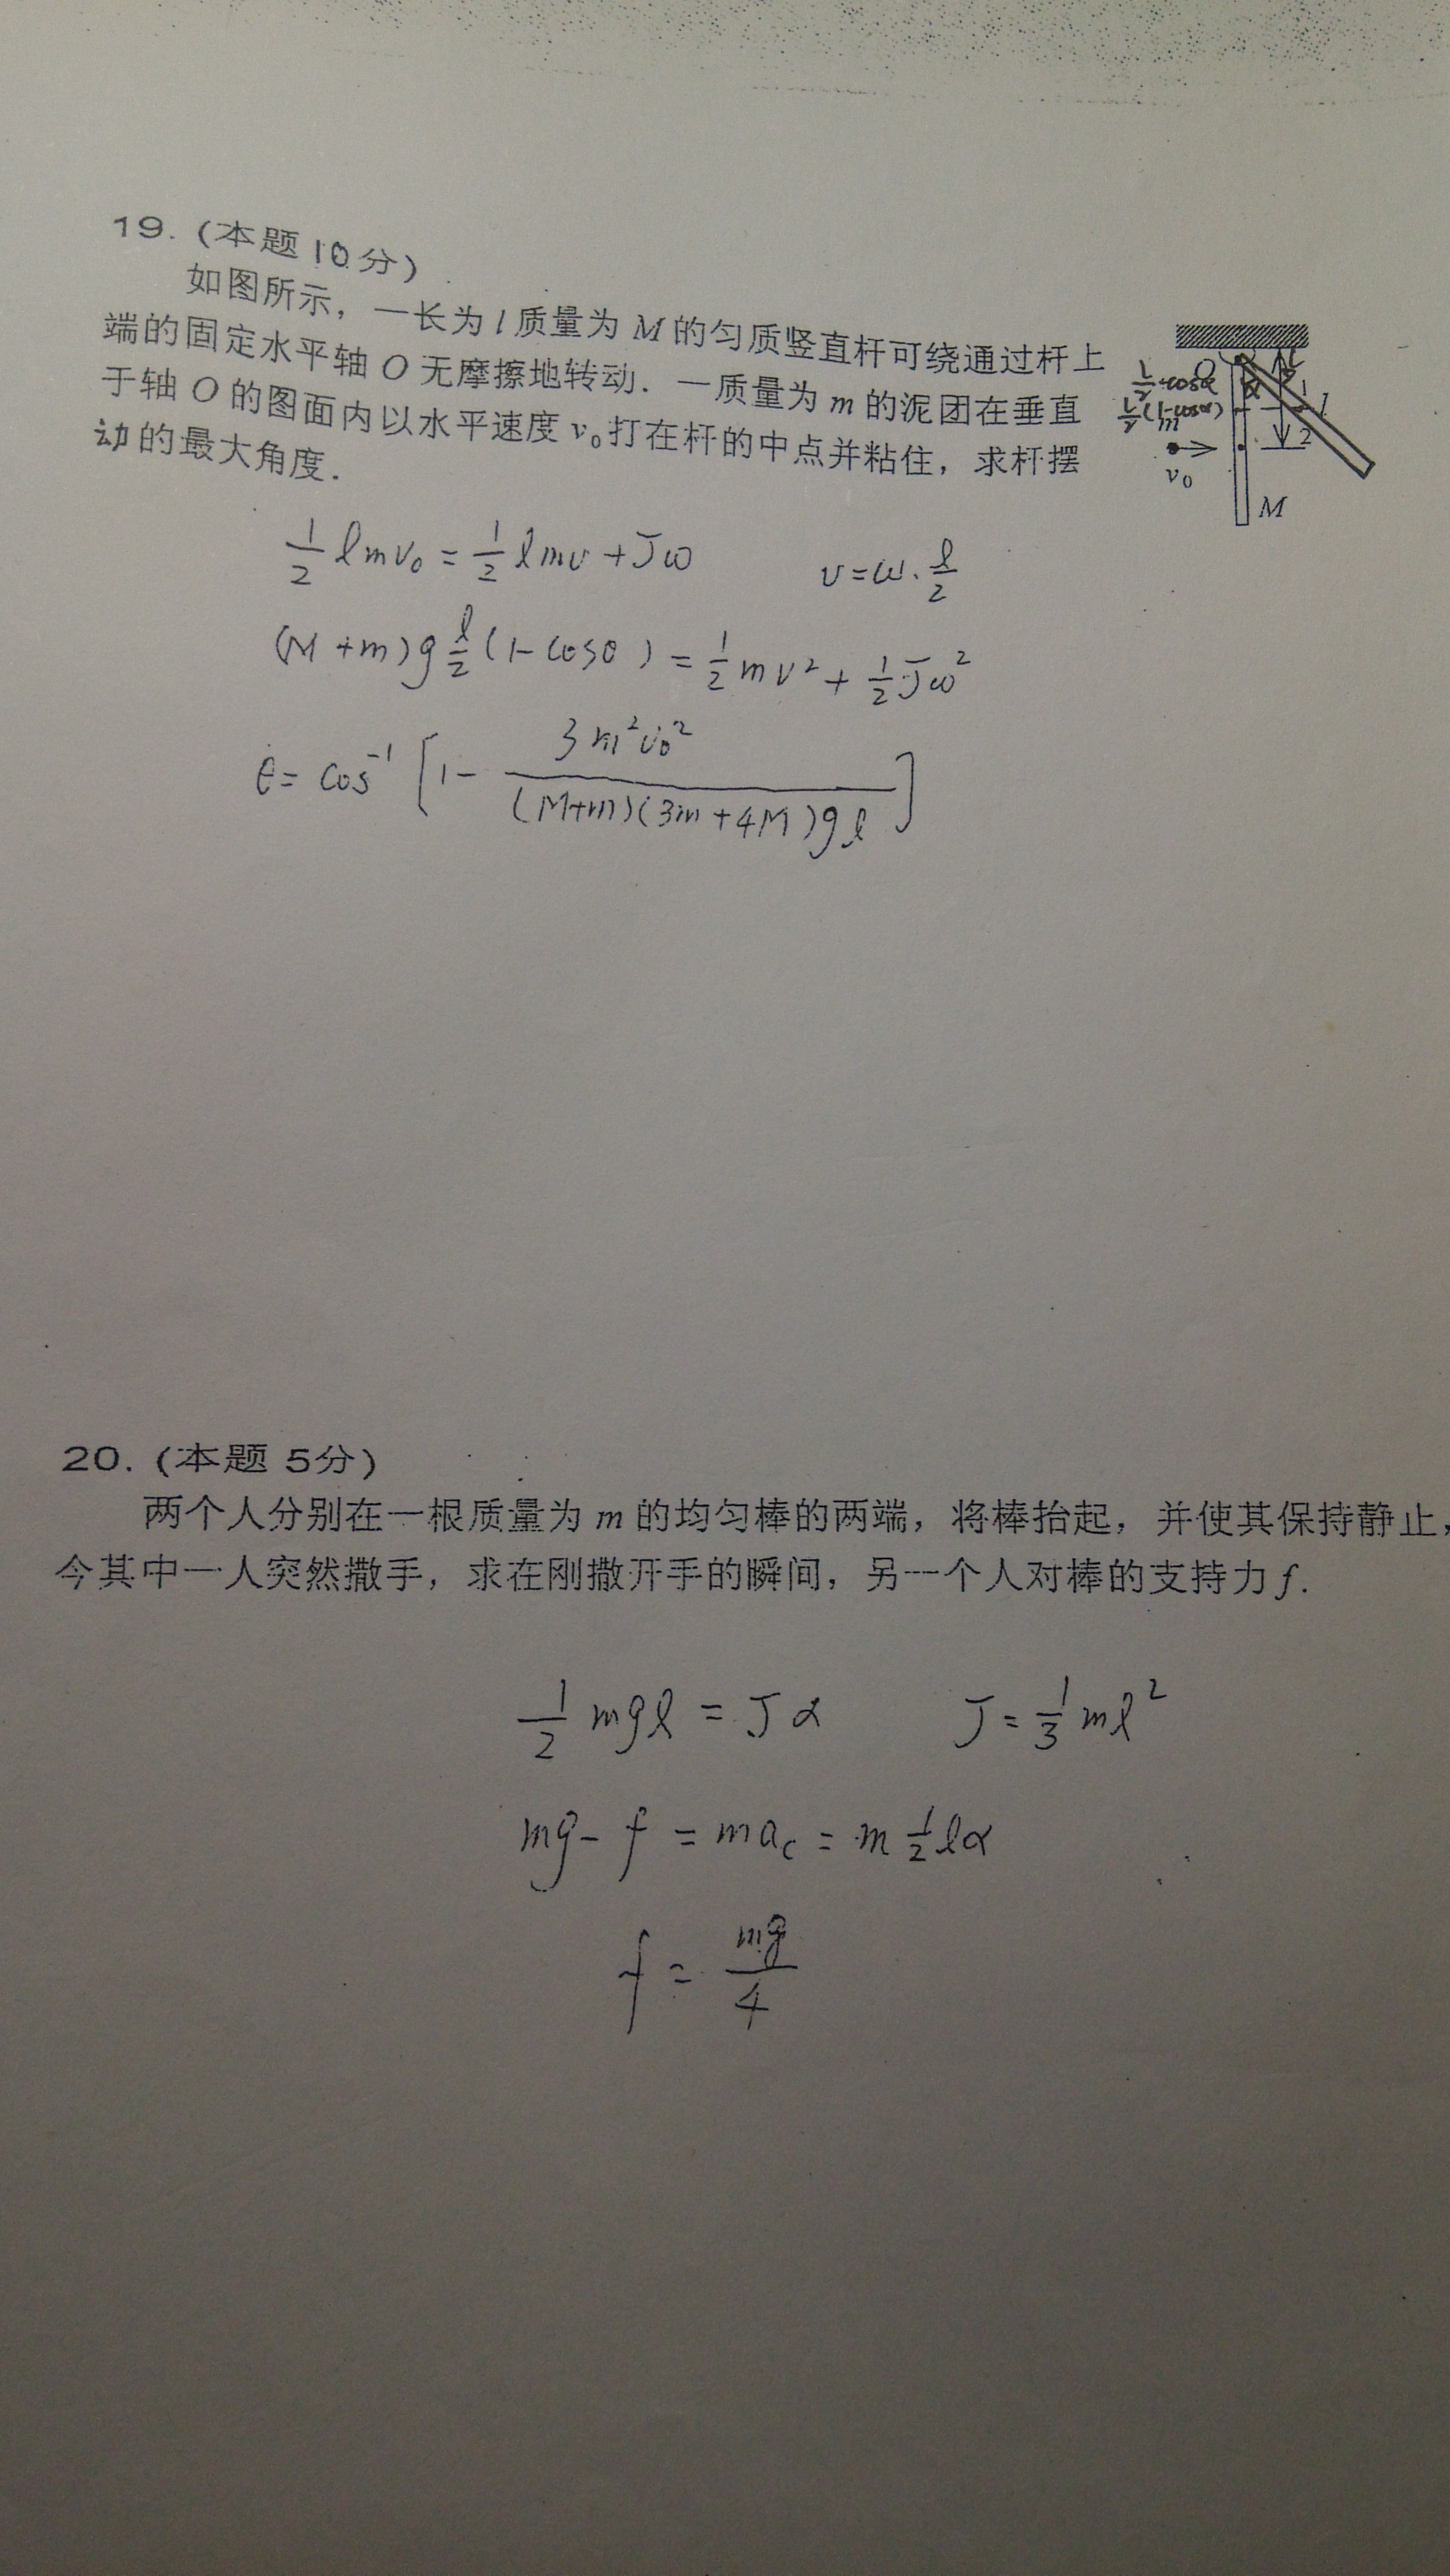 19. (本题 10 分)
如图所示，一长为 l 质量为 M 的匀质竖直杆可绕通过杆上
端的固定水平轴 O 无摩擦地转动．一质量为 m 的泥团在垂直
于轴 O 的图面内以水平速度 v₀ 打在杆的中点并粘住，求杆摆
动的最大角度．
O
α
l/2·cosα
l/2(1-cosα)
m
v₀
l
2
M
1/2 lmv₀ = 1/2 lmv + Jω  v = ω·l/2
(M+m)g l/2 (1-cosθ) = 1/2 mv² + 1/2 Jω²
θ = cos⁻¹ [1 - 3m²v₀² / (M+m)(3m+4M)gl]
20. (本题 5分)
两个人分别在一根质量为 m 的均匀棒的两端，将棒抬起，并使其保持静止，
今其中一人突然撒手，求在刚撒开手的瞬间，另一个人对棒的支持力 f．
1/2 mgl = Jα  J = 1/3 ml²
mg - f = ma_c = m 1/2 lα
f = mg/4